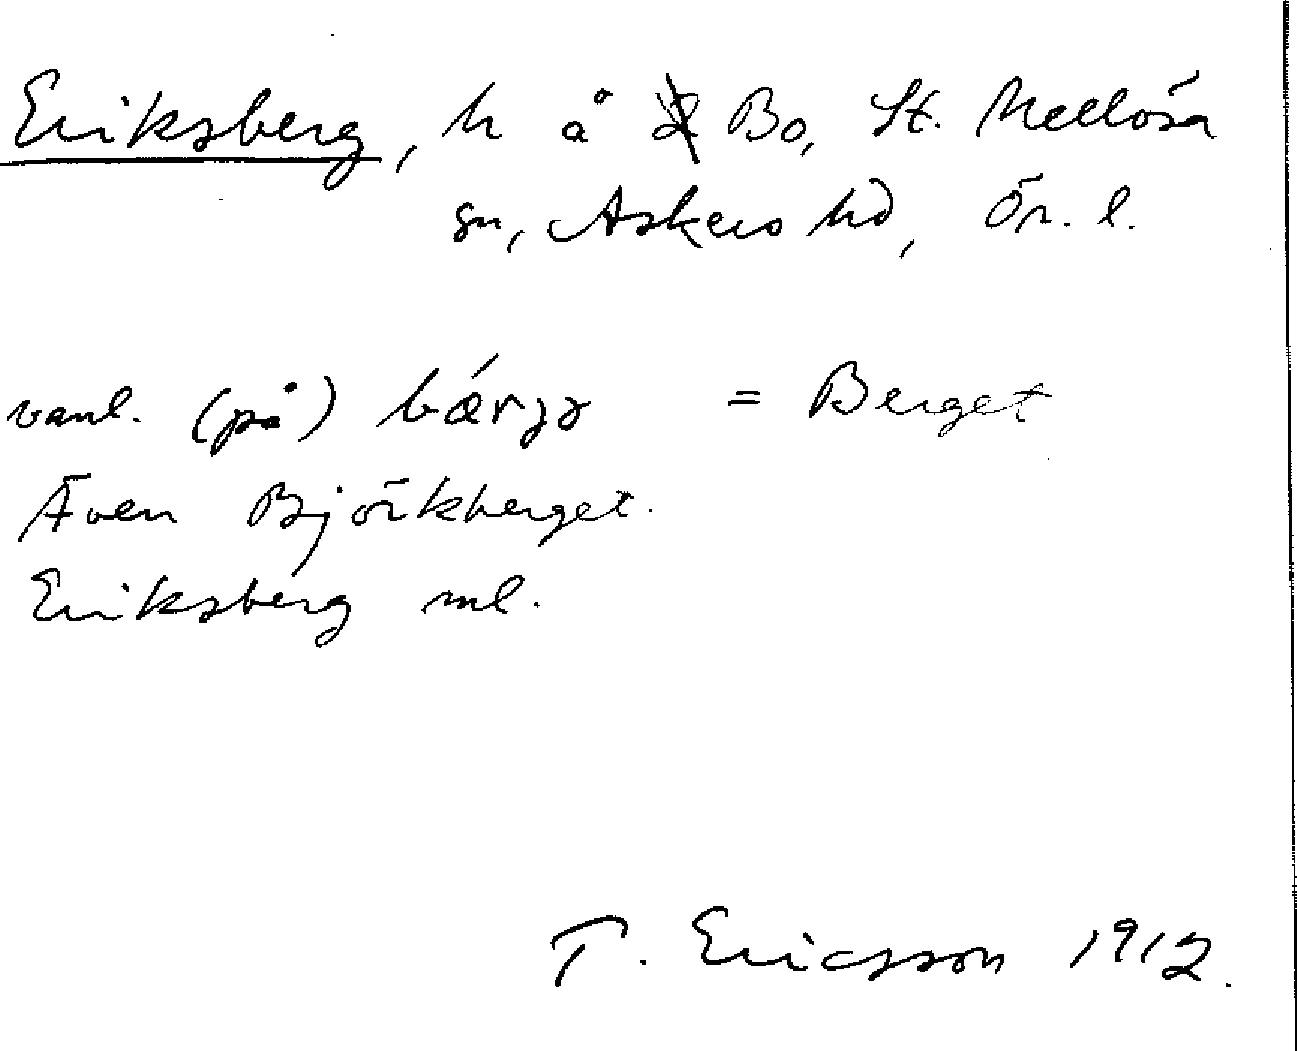 Eriksberg, h å Bo, St. Mellösa
sn, Askers hd, Ör. l.
vanl. (på) bǽrjə = Berget
Även Björkberget.
Eriksberg ml.
T. Ericsson 1912.